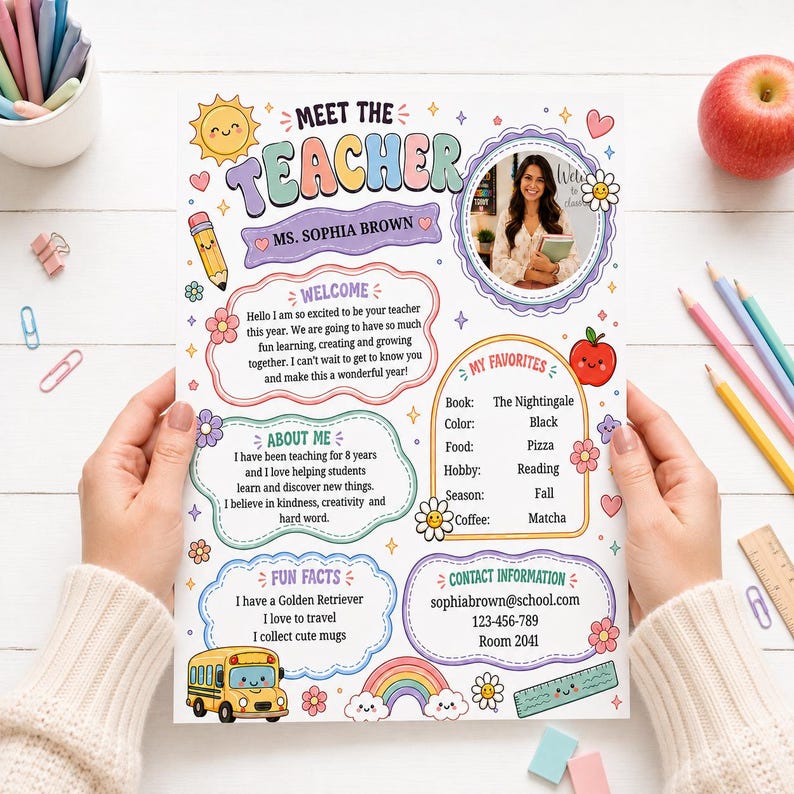 MEET THE
TEACHER
MS. SOPHIA BROWN
WELCOME
Hello I am so excited to be your teacher
this year. We are going to have so much
fun learning, creating and growing
together. I can't wait to get to know you
and make this a wonderful year!
ABOUT ME
I have been teaching for 8 years
and I love helping students
learn and discover new things.
I believe in kindness, creativity and
hard word.
FUN FACTS
I have a Golden Retriever
I love to travel
I collect cute mugs
Welc
to
class
MY FAVORITES
Book: The Nightingale
Color: Black
Food: Pizza
Hobby: Reading
Season: Fall
Coffee: Matcha
CONTACT INFORMATION
sophiabrown@school.com
123-456-789
Room 2041